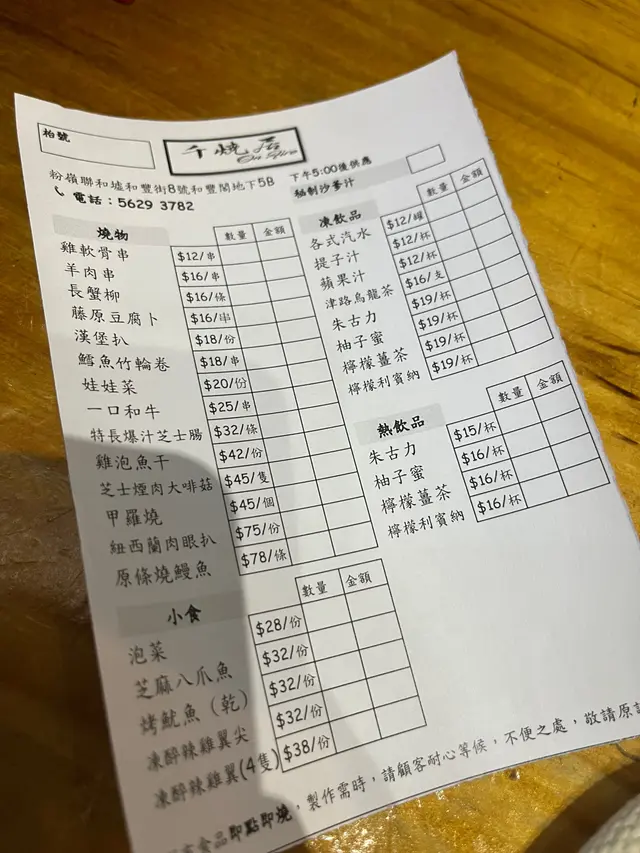 枱號
千燒居
粉嶺聯和墟和豐街8號和豐閣地下5B
電話：5629 3782
下午5:00後供應
秘制沙爹汁
燒物 數量 金額
雞軟骨串 $12/串
羊肉串 $16/串
長蟹柳 $16/條
藤原豆腐卜 $16/串
漢堡扒 $18/份
鱈魚竹輪卷 $18/串
娃娃菜 $20/份
一口和牛 $25/串
特長爆汁芝士腸 $32/條
雞泡魚干 $42/份
芝士煙肉大啡菇 $45/隻
甲羅燒 $45/個
紐西蘭肉眼扒 $75/份
原條燒鰻魚 $78/條
小食 數量 金額
泡菜 $28/份
芝麻八爪魚 $32/份
烤魷魚（乾） $32/份
凍醉辣雞翼尖 $32/份
凍醉辣雞翼(4隻) $38/份
凍飲品 數量 金額
各式汽水 $12/罐
提子汁 $12/杯
蘋果汁 $12/杯
津路烏龍茶 $16/支
朱古力 $19/杯
柚子蜜 $19/杯
檸檬薑茶 $19/杯
檸檬利賓納 $19/杯
熱飲品 數量 金額
朱古力 $15/杯
柚子蜜 $16/杯
檸檬薑茶 $16/杯
檸檬利賓納 $16/杯
食品即點即燒，製作需時，請顧客耐心等候，不便之處，敬請原